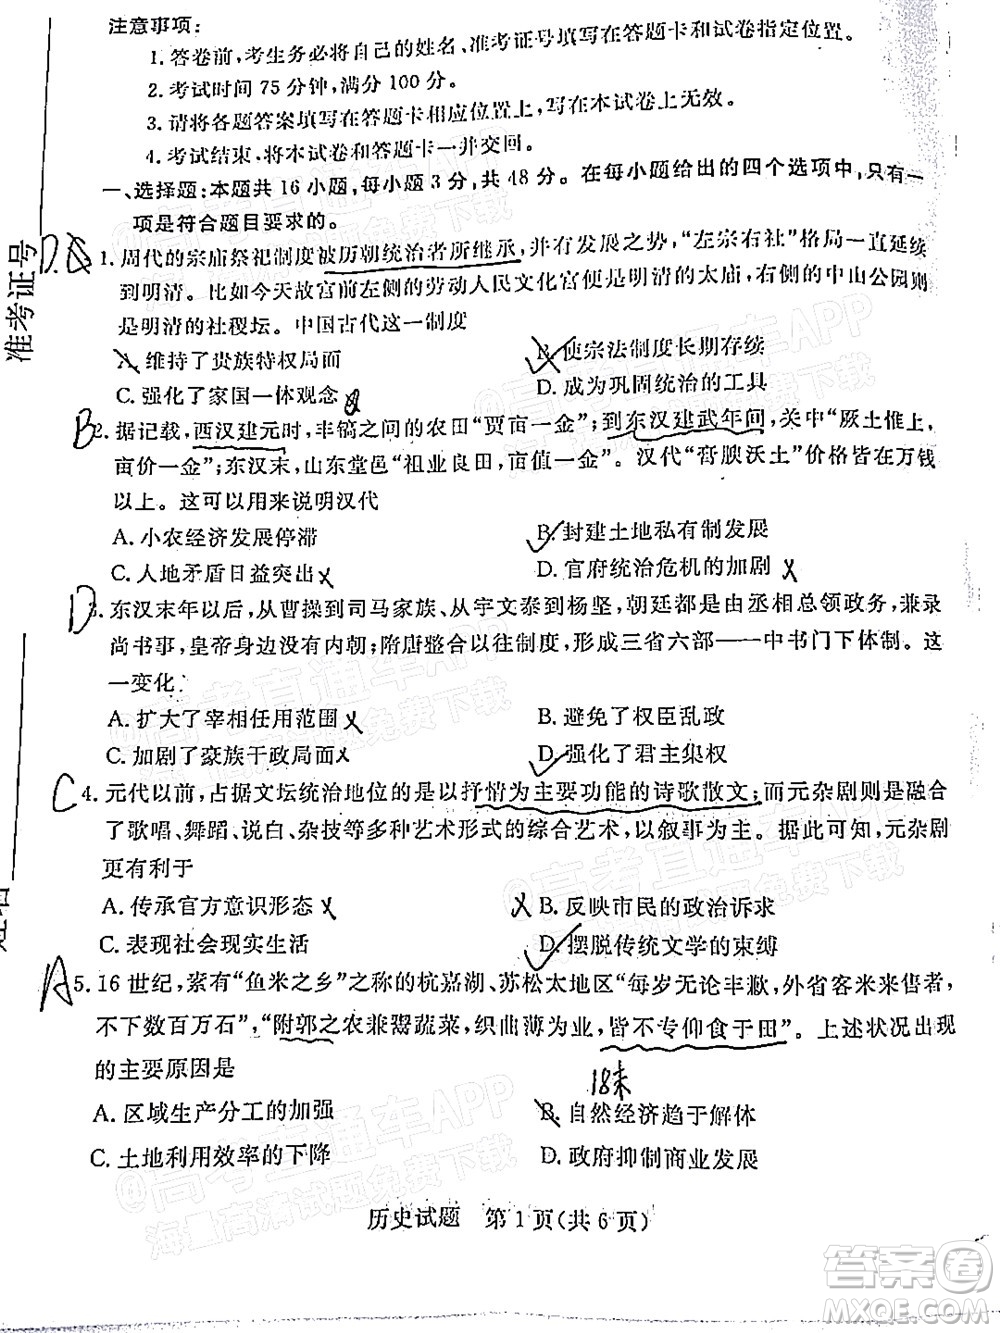 注意事项：
1. 答卷前，考生务必将自己的姓名、准考证号填写在答题卡和试卷指定位置。
2. 考试时间 75 分钟，满分 100 分。
3. 请将各题答案填写在答题卡相应位置上，写在本试卷上无效。
4. 考试结束，将本试卷和答题卡一并交回。
一、选择题：本题共 16 小题，每小题 3 分，共 48 分。在每小题给出的四个选项中，只有一
项是符合题目要求的。
准考证号
D.
1. 周代的宗庙祭祀制度被历朝统治者所继承，并有发展之势，“左宗右社”格局一直延续
到明清。比如今天故宫前左侧的劳动人民文化宫是明清的太庙，右侧的中山公园则
是明清的社稷坛。中国古代这一制度
A. 维持了贵族特权局面 B. 使宗法制度长期存续
C. 强化了家国一体观念 D. 成为巩固统治的工具
B
2. 据记载，西汉建元时，丰镐之间的农田“贾亩一金”；到东汉建武年间，关中“厥土惟上，
亩价一金”；东汉末，山东堂邑“祖业良田，亩值一金”。汉代“膏腴沃土”价格皆在万钱
以上。这可以用来说明汉代
A. 小农经济发展停滞 B. 封建土地私有制发展
C. 人地矛盾日益突出 D. 官府统治危机的加剧
D
3. 东汉末年以后，从曹操到司马家族、从宇文泰到杨坚，朝廷都是由丞相总领政务，兼录
尚书事，皇帝身边没有内朝；附唐整合以往制度，形成三省六部——中书门下体制。这
一变化
A. 扩大了宰相任用范围 B. 避免了权臣乱政
C. 加剧了豪族干政局面 D. 强化了君主集权
C
4. 元代以前，占据文坛统治地位的是以抒情为主要功能的诗歌散文；而元杂剧则是融合
了歌唱、舞蹈、说白、杂技等多种艺术形式的综合艺术，以叙事为主。据此可知，元杂剧
更有利于
A. 传承官方意识形态 B. 反映市民的政治诉求
C. 表现社会现实生活 D. 摆脱传统文学的束缚
A
5. 16 世纪，素有“鱼米之乡”之称的杭嘉湖、苏松太地区“每岁无论丰歉，外省客米来售者，
不下数百万石”，“附郭之农兼鬻蔬菜，织曲薄为业，皆不专仰食于田”。上述状况出现
的主要原因是
18末
A. 区域生产分工的加强 B. 自然经济趋于解体
C. 土地利用效率的下降 D. 政府抑制商业发展
历史试题 第 1 页(共 6 页)
@高考直通车APP
海量高清试题免费下载
答案圈
MXQE.COM